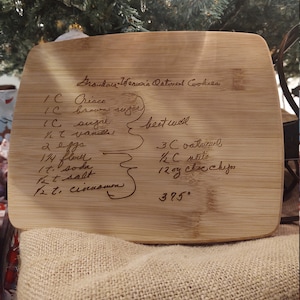 Grandma Werner's Oatmeal Cookies
1 C Crisco
1 C brown sugar
1 C sugar
½ t vanilla
2 eggs
beat well
1½ flour
1 t. soda
½ t salt
½ t. cinnamon
3 C oatmeal
½ C nuts
12 oz choc chips
375°